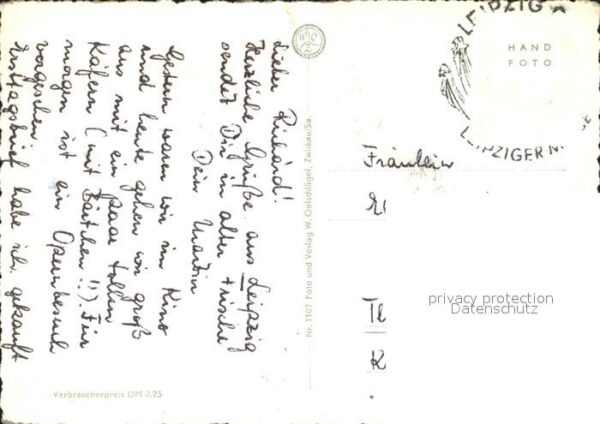 Lieber Richárd!
Herzliche Grüße aus Leipzig
sendet Dir in alter Frische
Dein Martin
Gestern waren wir im Kino
und heute gehen wir groß
aus mit ein paar tollen
Käfern (mit Bärtchen!!). Für
morgen ist ein Opernbesuch
vorgesehen.
habe ich gekauft
Verbraucherpreis DM 0,25
Nr. 1107 Foto und Verlag W. Oelschlägel, Zwickau/Sa.
LEIPZIG
LEIPZIGER M
HAND
FOTO
Fräulein
El
Th
K
privacy protection
Datenschutz